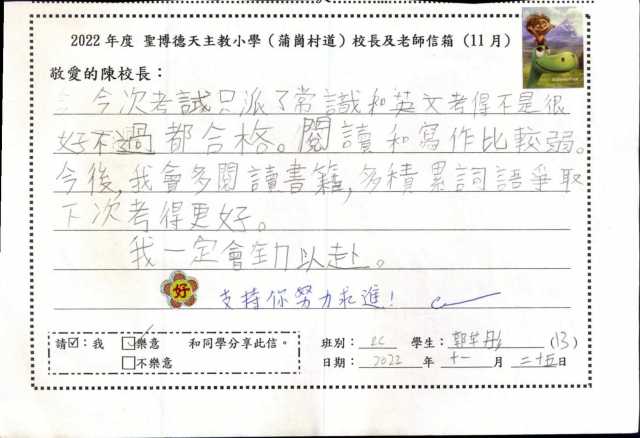 2022 年度 聖博德天主教小學（蒲崗村道）校長及老師信箱（11月）
敬愛的陳校長：
今次考試只派了常識和英文考得不是很
好不過都合格。閱讀和寫作比較弱。
今後,我會多閱讀書籍,多積累詞語爭取
下次考得更好。
我一定會全力以赴。
好 支持你努力求進!
請☑：我 ☑樂意 和同學分享此信。 班別： 2C 學生： 郭芊彤 (13)
☐不樂意 日期： 2022 年 十一 月 二十五日